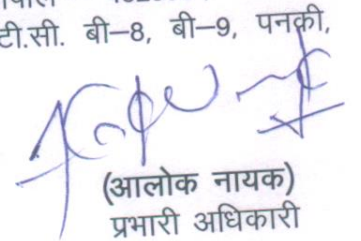 टी.सी. बी–8, बी–9, पनकी,
(आलोक नायक)
प्रभारी अधिकारी